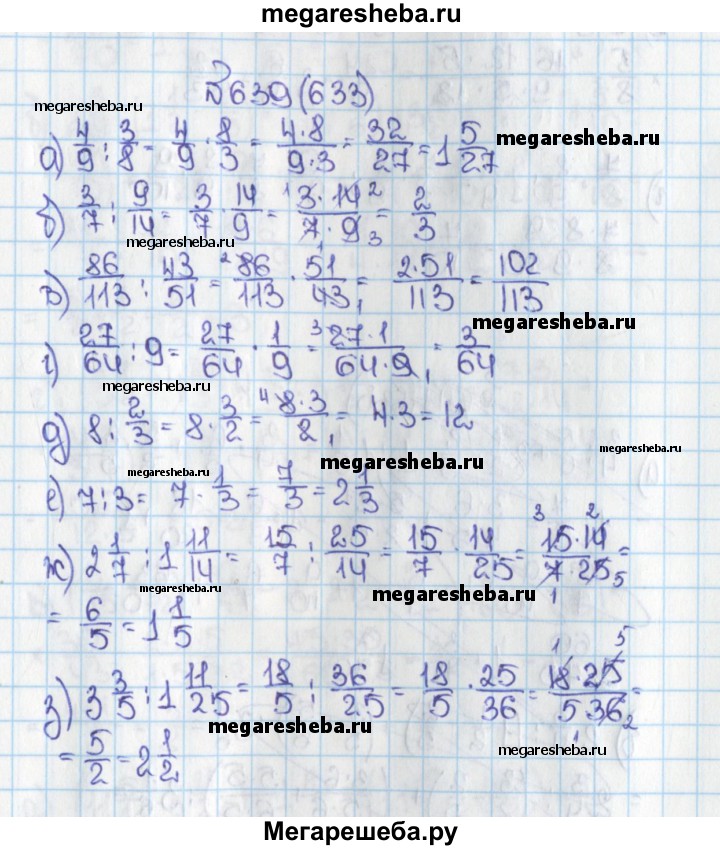 megaresheba.ru
№639(633)
megaresheba.ru
а) 4/9 : 3/8 = 4/9 · 8/3 = 4·8/9·3 = 32/27 = 1 5/27
megaresheba.ru
б) 3/7 : 9/14 = 3/7 · 14/9 = 3·14/7·9 = 2/3
megaresheba.ru
в) 86/113 : 43/51 = 86/113 · 51/43 = 2·51/113 = 102/113
megaresheba.ru
г) 27/64 : 9 = 27/64 · 1/9 = 27·1/64·9 = 3/64
megaresheba.ru
д) 8 : 2/3 = 8 · 3/2 = 8·3/2 = 4·3 = 12
megaresheba.ru
megaresheba.ru
е) 7 : 3 = 7 · 1/3 = 7/3 = 2 1/3
ж) 2 1/7 : 1 11/14 = 15/7 : 25/14 = 15/7 · 14/25 = 15·14/7·25 =
megaresheba.ru
megaresheba.ru
= 6/5 = 1 1/5
з) 3 3/5 : 1 11/25 = 18/5 : 36/25 = 18/5 · 25/36 = 18·25/5 36 =
megaresheba.ru
megaresheba.ru
= 5/2 = 2 1/2
megaresheba.ru
Мегарешеба.ру